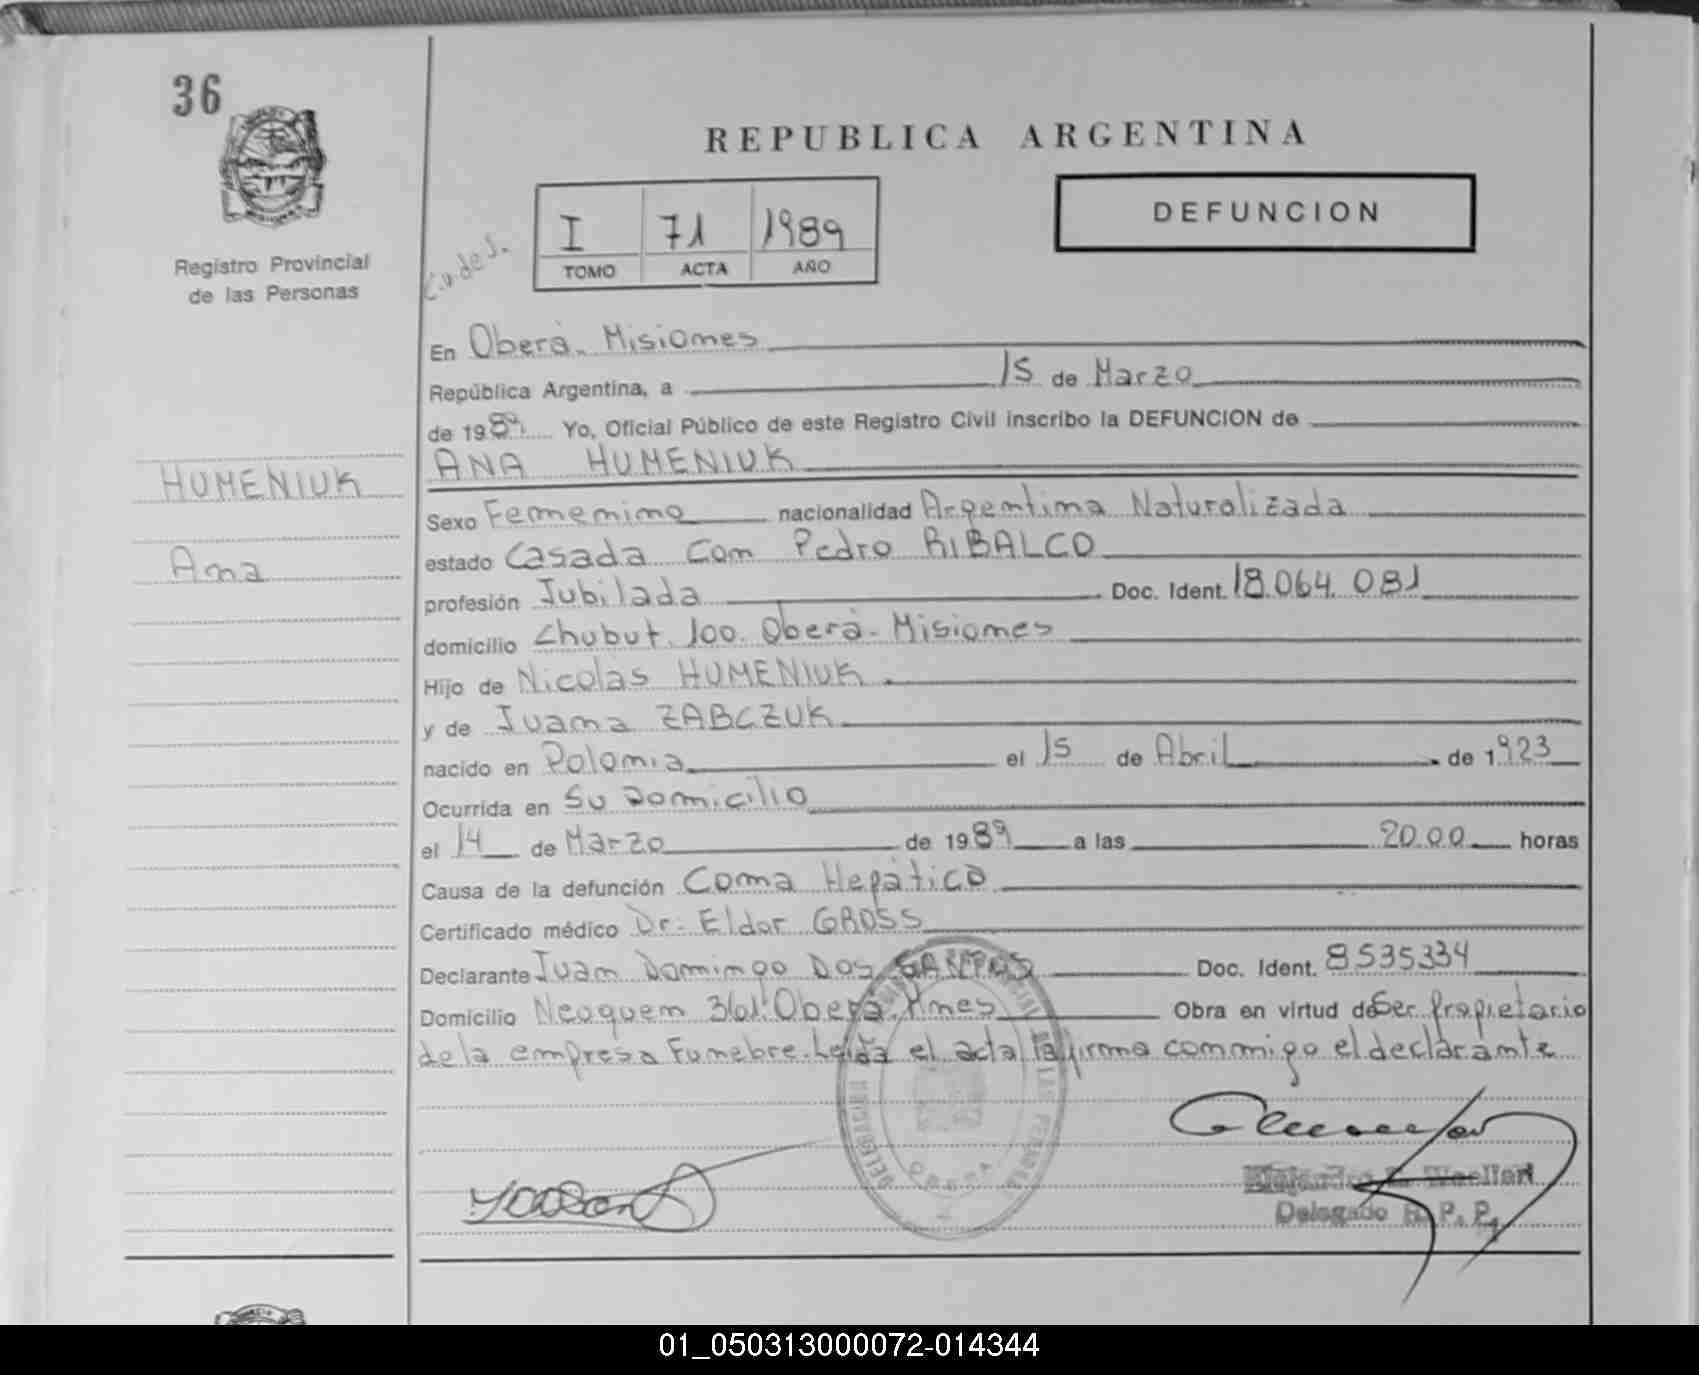 36
REPUBLICA ARGENTINA
DEFUNCION
I 71 1989
TOMO ACTA AÑO
Registro Provincial
de las Personas
En Oberá. Misiones
República Argentina, a 15 de Marzo
de 1989 Yo, Oficial Público de este Registro Civil inscribo la DEFUNCION de
HUMENIUK
ANA HUMENIUK
Sexo Femenino nacionalidad Argentina Naturalizada
Ana
estado Casada Con Pedro RIBALCO
profesión Jubilada Doc. Ident. 18.064.081
domicilio Chubut. 100. Oberá- Misiones
Hijo de Nicolas HUMENIUK
y de Juana ZABCZUK
nacido en Polonia el 15 de Abril de 1923
Ocurrida en Su Domicilio
el 14 de Marzo de 1989 a las 20.00 horas
Causa de la defunción Coma Hepático
Certificado médico Dr. Eldor GROSS
Declarante Juan Domingo DOS SANTOS Doc. Ident. 8535334
Domicilio Neoquem 361. Oberá. Mnes Obra en virtud de Ser Propietario
de la empresa Funebre. Leída el acta la firma conmigo el declarante
Delegado R. P. P.
01_050313000072-014344